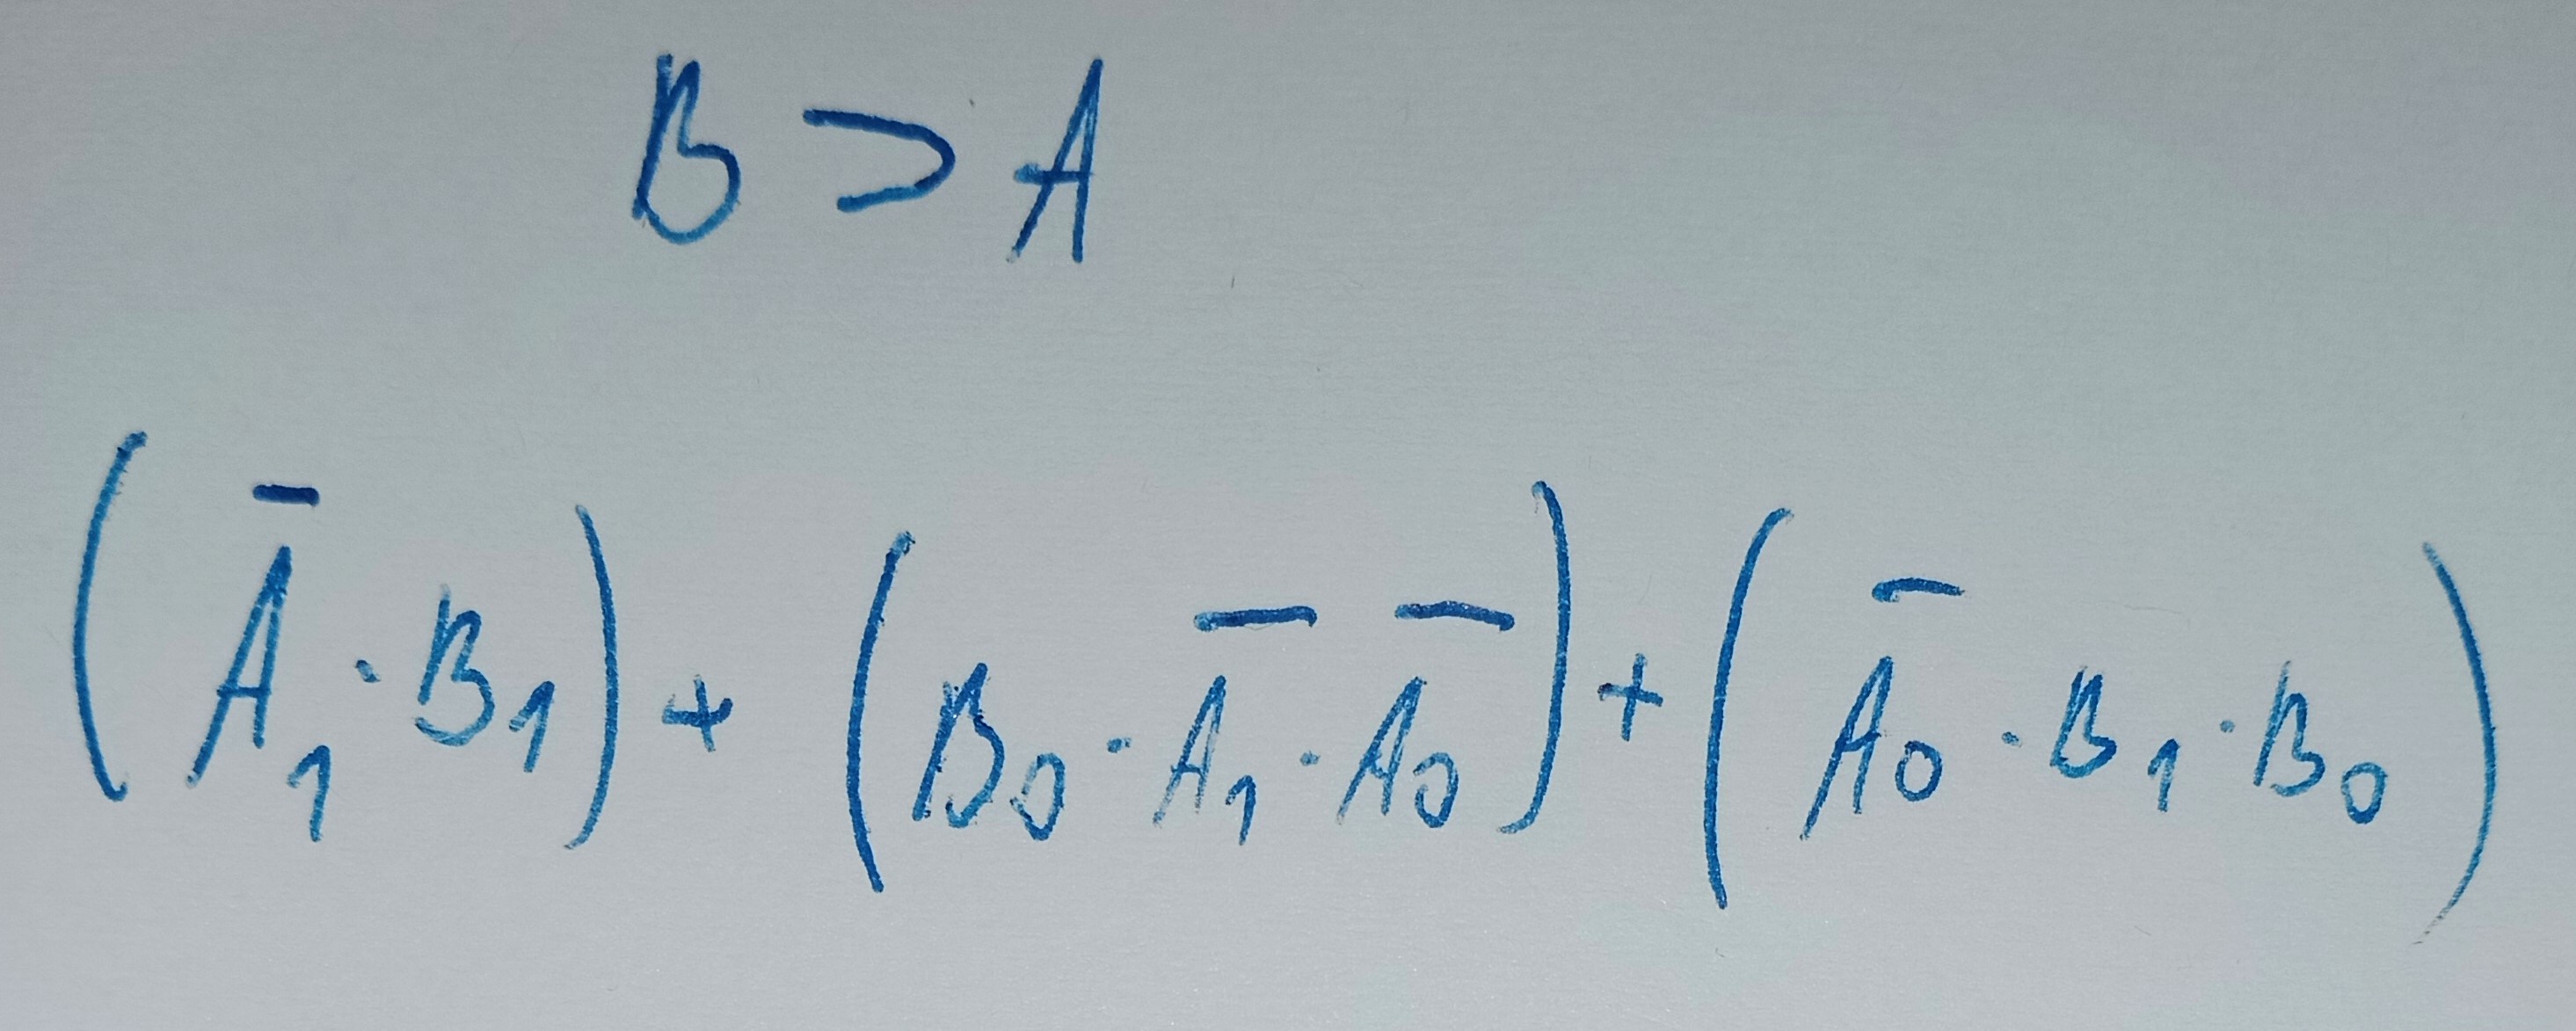 B > A
(A̅₁ · B₁) + (B₀ · A̅₁ · A̅₀) + (A̅₀ · B₁ · B₀)